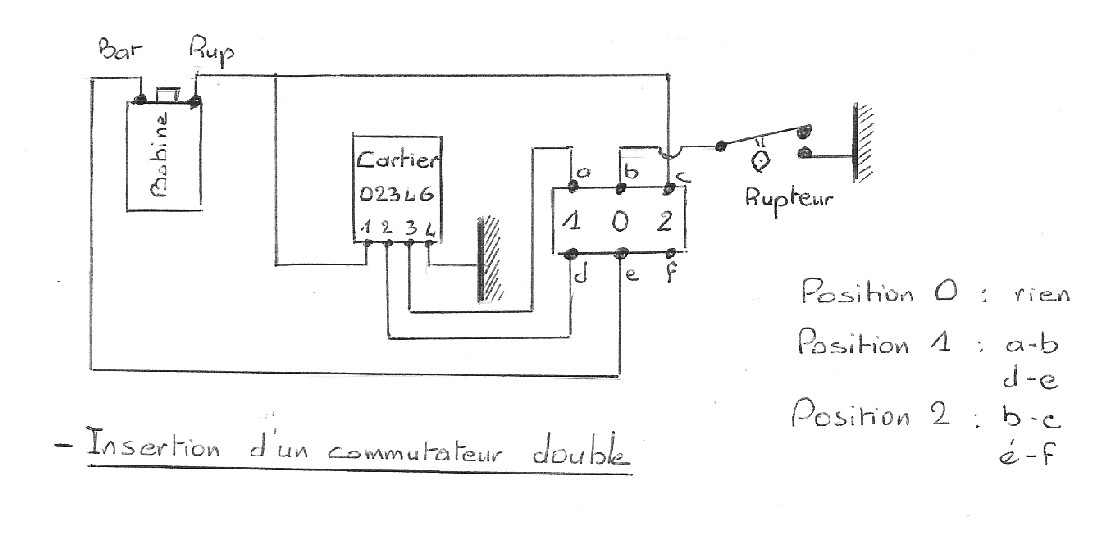 Bar Rup
Bobine
Cartier
02346
1 2 3 4
a b c
1 0 2
d e f
Rupteur
Position 0 : rien
Position 1 : a-b
d-e
Position 2 : b-c
é-f
- Insertion d'un commutateur double